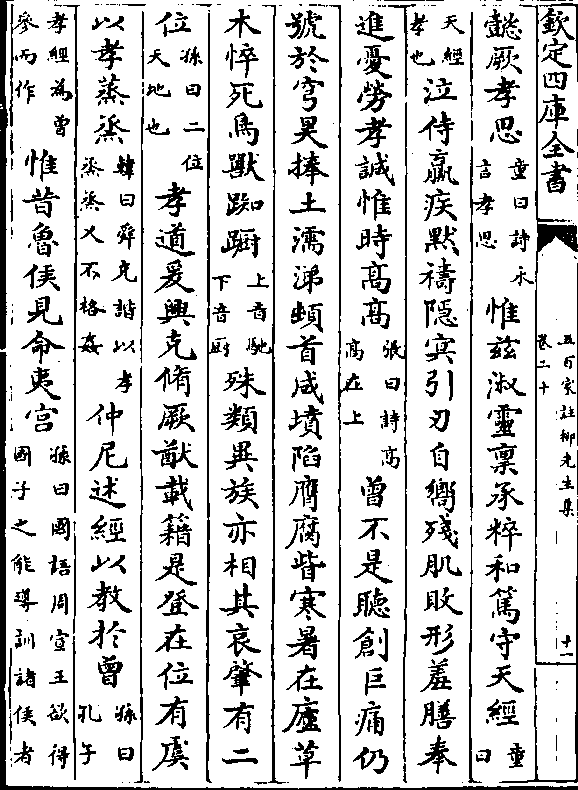 欽定四庫全書
五百家註柳先生集
卷二十
十一
懿厥孝思童曰詩永言孝思惟茲淑靈稟承粹和篤守天經童曰
天經孝也泣侍羸疾默禱隠㝠引刃自嚮殘肌敗形羞膳奉
進憂勞孝誠惟時髙髙張曰詩髙髙在上曾不是聽創巨痛仍
號於穹昊捧土濡涕頓首成墳陷膺腐眥寒暑在廬草
木悴死鳥獸踟蹰上音馳下音厨殊類異族亦相其哀肇有二
位孫曰二位天地也孝道爰興克脩厥猷載籍是登在位有虞
以孝蒸蒸韓曰舜克諧以孝蒸蒸乂不格姦仲尼述經以教於曾孫曰孔子
孝經為曾參而作惟昔魯侯見命夷宫孫曰國語周宣王欲得國子之能導訓諸侯者